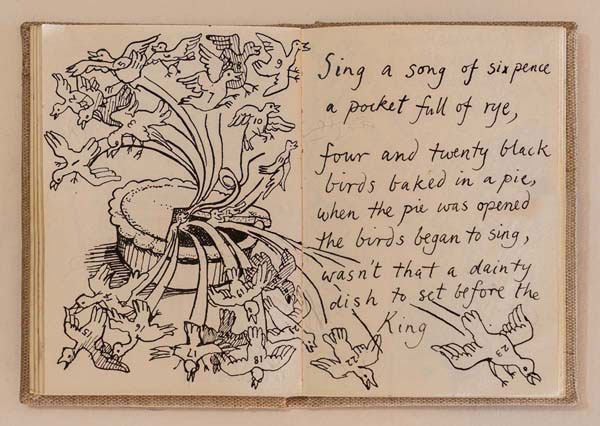 Sing a song of sixpence
a pocket full of rye,
four and twenty black
birds baked in a pie,
when the pie was opened
the birds began to sing,
wasn't that a dainty
dish to set before the
King
8
9
3
10
15
17
18
22
23